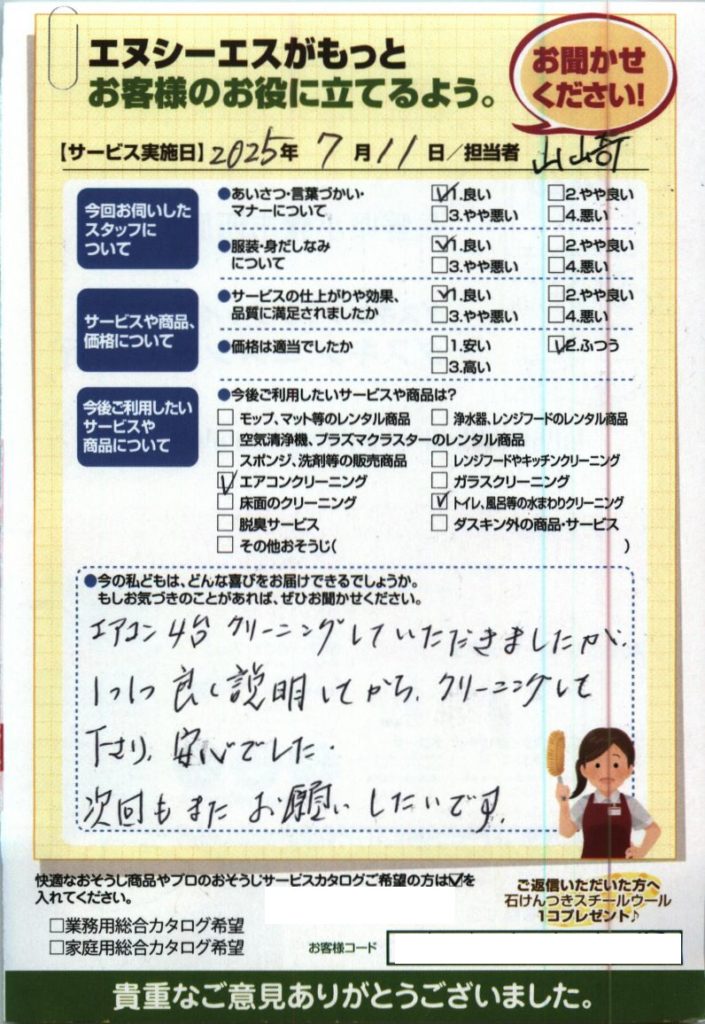 エヌシーエスがもっと
お客様のお役に立てるよう。
お聞かせ
ください!
【サービス実施日】2025年 7月11日/担当者 山崎
今回お伺いした
スタッフに
ついて
●あいさつ・言葉づかい・
マナーについて
☑1.良い □2.やや良い
□3.やや悪い □4.悪い
●服装・身だしなみ
について
☑1.良い □2.やや良い
□3.やや悪い □4.悪い
サービスや商品、
価格について
●サービスの仕上がりや効果、
品質に満足されましたか
☑1.良い □2.やや良い
□3.やや悪い □4.悪い
●価格は適当でしたか
□1.安い ☑2.ふつう
□3.高い
今後ご利用したい
サービスや
商品について
●今後ご利用したいサービスや商品は?
□ モップ、マット等のレンタル商品 □ 浄水器、レンジフードのレンタル商品
□ 空気清浄機、プラズマクラスターのレンタル商品
□ スポンジ、洗剤等の販売商品 □ レンジフードやキッチンクリーニング
☑ エアコンクリーニング □ ガラスクリーニング
□ 床面のクリーニング ☑ トイレ、風呂等の水まわりクリーニング
□ 脱臭サービス □ ダスキン外の商品・サービス
□ その他おそうじ( )
●今の私どもは、どんな喜びをお届けできるでしょうか。
もしお気づきのことがあれば、ぜひお聞かせください。
エアコン4台クリーニングしていただきましたが、
1つ1つ良く説明してから、クリーニングして
下さり、安心でした.
次回もまたお願いしたいです.
快適なおそうじ商品やプロのおそうじサービスカタログご希望の方は☑を
入れてください。
□業務用総合カタログ希望
□家庭用総合カタログ希望
ご返信いただいた方へ
石けんつきスチールウール
1コプレゼント♪
お客様コード
貴重なご意見ありがとうございました。